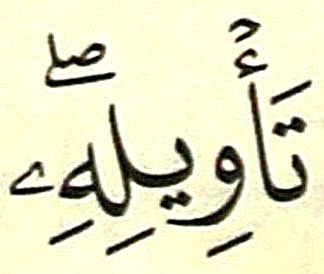 تَأْوِيلِهِۦٓۖ